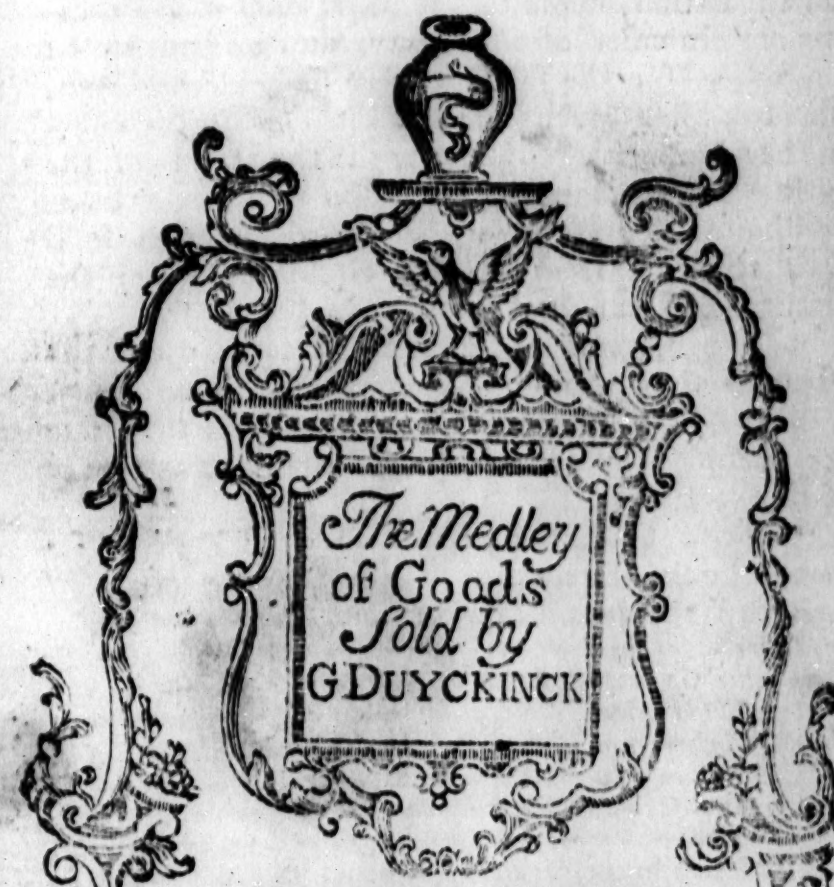 The Medley
of Goods
Sold by
G DUYCKINCK